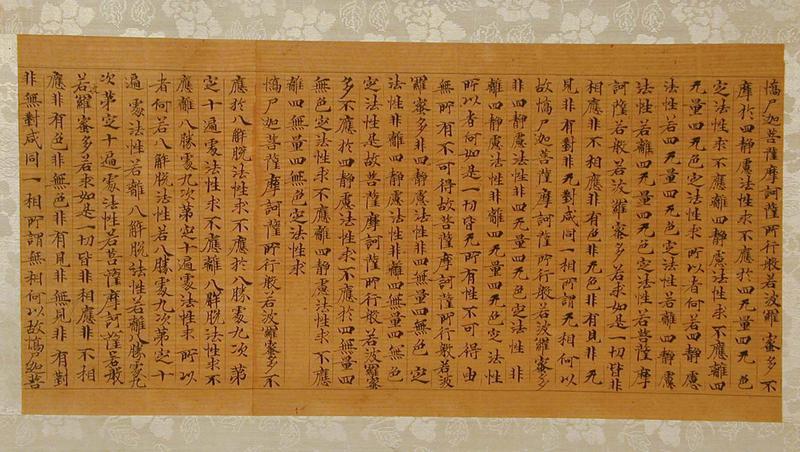 憍尸迦菩薩摩訶薩所行般若波羅蜜多不
應於四靜慮法性求不應於四无量四无色
定法性求不應離四靜慮法性求不應離四
无量四无色定法性求所以者何若四靜慮
法性若四无量四无色定法性若離四靜慮
法性若離四无量四无色定法性若菩薩摩
訶薩若般若波羅蜜多若求如是一切皆非
相應非不相應非有色非无色非有見非无
見非有對非无對咸同一相所謂无相何以
故憍尸迦菩薩摩訶薩所行般若波羅蜜多
非四靜慮法性非四无量四无色定法性非
離四靜慮法性非離四无量四无色定法性
所以者何如是一切皆无所有性不可得由
無所有不可得故菩薩摩訶薩所行般若波
羅蜜多非四靜慮法性非四無量四無色定
法性非離四靜慮法性非離四無量四無色
定法性是故菩薩摩訶薩所行般若波羅蜜
多不應於四靜慮法性求不應於四無量四
無色定法性求不應離四靜慮法性求不應
離四無量四無色定法性求
憍尸迦菩薩摩訶薩所行般若波羅蜜多不
應於八解脫法性求不應於八勝處九次第
定十遍處法性求不應離八解脫法性求不
應離八勝處九次第定十遍處法性求所以
者何若八解脫法性若八勝處九次第定十
遍處法性若離八解脫法性若離八勝處九
次第定十遍處法性若菩薩摩訶薩若般
若波羅蜜多若求如是一切皆非相應非不相
應非有色非無色非有見非無見非有對
非無對咸同一相所謂無相何以故憍尸迦菩